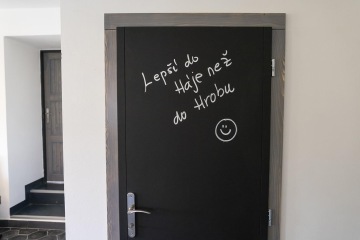 Lepší do
Háje než
do Hrobu